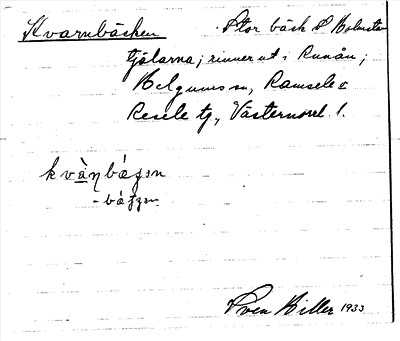 Kvarnbäcken Stor bäck S Holmstra
tjälarna; rinner ut i Runån;
Helgums sn, Ramsele o
Resele tg, Västernorrl. l.
kvàŋbáʒən
-báʒʒən
Sven Hiller 1933